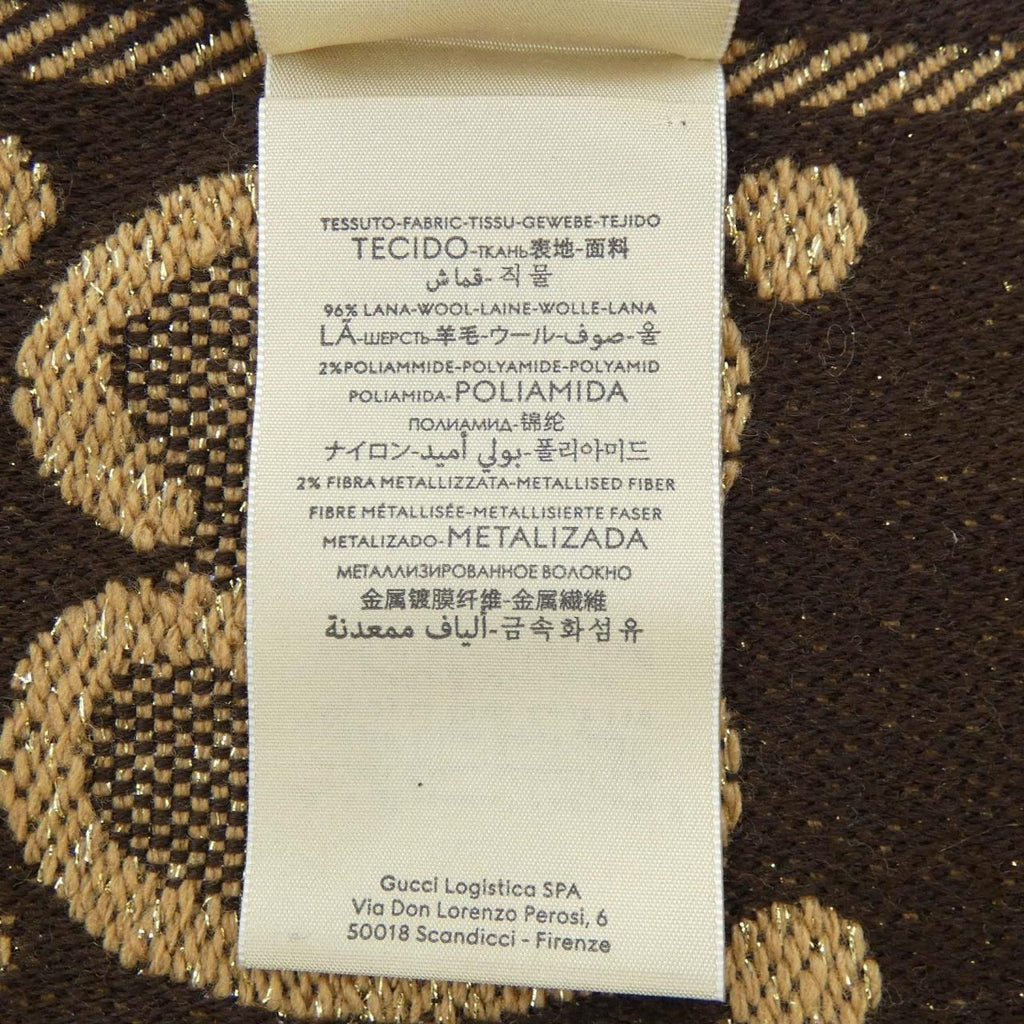 TESSUTO-FABRIC-TISSU-GEWEBE-TEJIDO
TECIDO-ТКАНЬ表地-面料
قماش-직물
96% LANA-WOOL-LAINE-WOLLE-LANA
LÃ-ШЕРСТЬ-羊毛-ウール-صوف-울
2%POLIAMMIDE-POLYAMIDE-POLYAMID
POLIAMIDA-POLIAMIDA
ПОЛИАМИД-锦纶
ナイロン-بولي أميد-폴리아미드
2% FIBRA METALLIZZATA-METALLISED FIBER
FIBRE MÉTALLISÉE-METALLISIERTE FASER
METALIZADO-METALIZADA
МЕТАЛЛИЗИРОВАННОЕ ВОЛОКНО
金属镀膜纤维-金属繊維
ألياف ممعدنة-금속화섬유
Gucci Logistica SPA
Via Don Lorenzo Perosi, 6
50018 Scandicci - Firenze